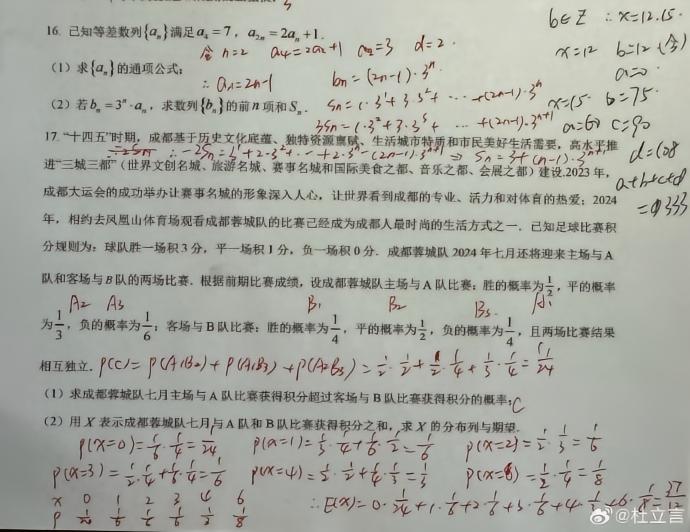 16. 已知等差数列{aₙ}满足a₄=7，a₂ₙ=2aₙ+1.
令n=2 a₄=2a₂+1 a₂=3 d=2.
(1) 求{aₙ}的通项公式;
∴ aₙ=2n-1
bₙ=(2n-1)·3ⁿ
(2) 若bₙ=3ⁿ·aₙ，求数列{bₙ}的前n项和Sₙ.
Sₙ=1·3¹+3·3²+ ⋯ +(2n-1)·3ⁿ
3Sₙ=1·3²+3·3³+ ⋯ +(2n-1)·3ⁿ⁺¹
b∈Z ∴x=12.15.
x=12 b=12(舍)
a=0
x=15 b=75.
a=60 c=90
d=108
a+b+c+d
=333
17. “十四五”时期，成都基于历史文化底蕴、独特资源禀赋、生活城市特质和市民美好生活需要，高水平推
∴-2Sₙ=3¹+2·3²+⋯+2·3ⁿ-(2n-1)·3ⁿ⁺¹ ⇒ Sₙ=3+(n-1)·3ⁿ⁺¹
进“三城三都”（世界文创名城、旅游名城、赛事名城和国际美食之都、音乐之都、会展之都）建设.2023年，
成都大运会的成功举办让赛事名城的形象深入人心，让世界看到成都的专业、活力和对体育的热爱；2024
年，相约去凤凰山体育场观看成都蓉城队的比赛已经成为成都人最时尚的生活方式之一. 已知足球比赛积
分规则为：球队胜一场积3分，平一场积1分，负一场积0分. 成都蓉城队2024年七月还将迎来主场与A
队和客场与B队的两场比赛. 根据前期比赛成绩，设成都蓉城队主场与A队比赛：胜的概率为1/2，平的概率
A₂ A₃ B₁ B₂ B₃ A₁
为1/3，负的概率为1/6；客场与B队比赛：胜的概率为1/4，平的概率为1/2，负的概率为1/4，且两场比赛结果
相互独立. P(C)=P(A₁B₂)+P(A₁B₃)+P(A₂B₃)=1/2·1/2+1/2·1/4+1/3·1/4=11/24
(1) 求成都蓉城队七月主场与A队比赛获得积分超过客场与B队比赛获得积分的概率; C
(2) 用X表示成都蓉城队七月与A队和B队比赛获得积分之和，求X的分布列与期望.
P(X=0)=1/6·1/4=1/24 P(X=1)=1/3·1/4+1/6·1/2=1/6 P(X=2)=1/2·1/3=1/6
P(X=3)=1/2·1/4+1/6·1/4=1/6 P(X=4)=1/2·1/2+1/4·1/3=1/3 P(X=6)=1/2·1/4=1/8
X 0 1 2 3 4 6
P 1/24 1/6 1/6 1/6 1/3 1/8
∴E(X)=0·1/24+1·1/6+2·1/6+3·1/6+4·1/3+6·1/8=37/12
@杜立言